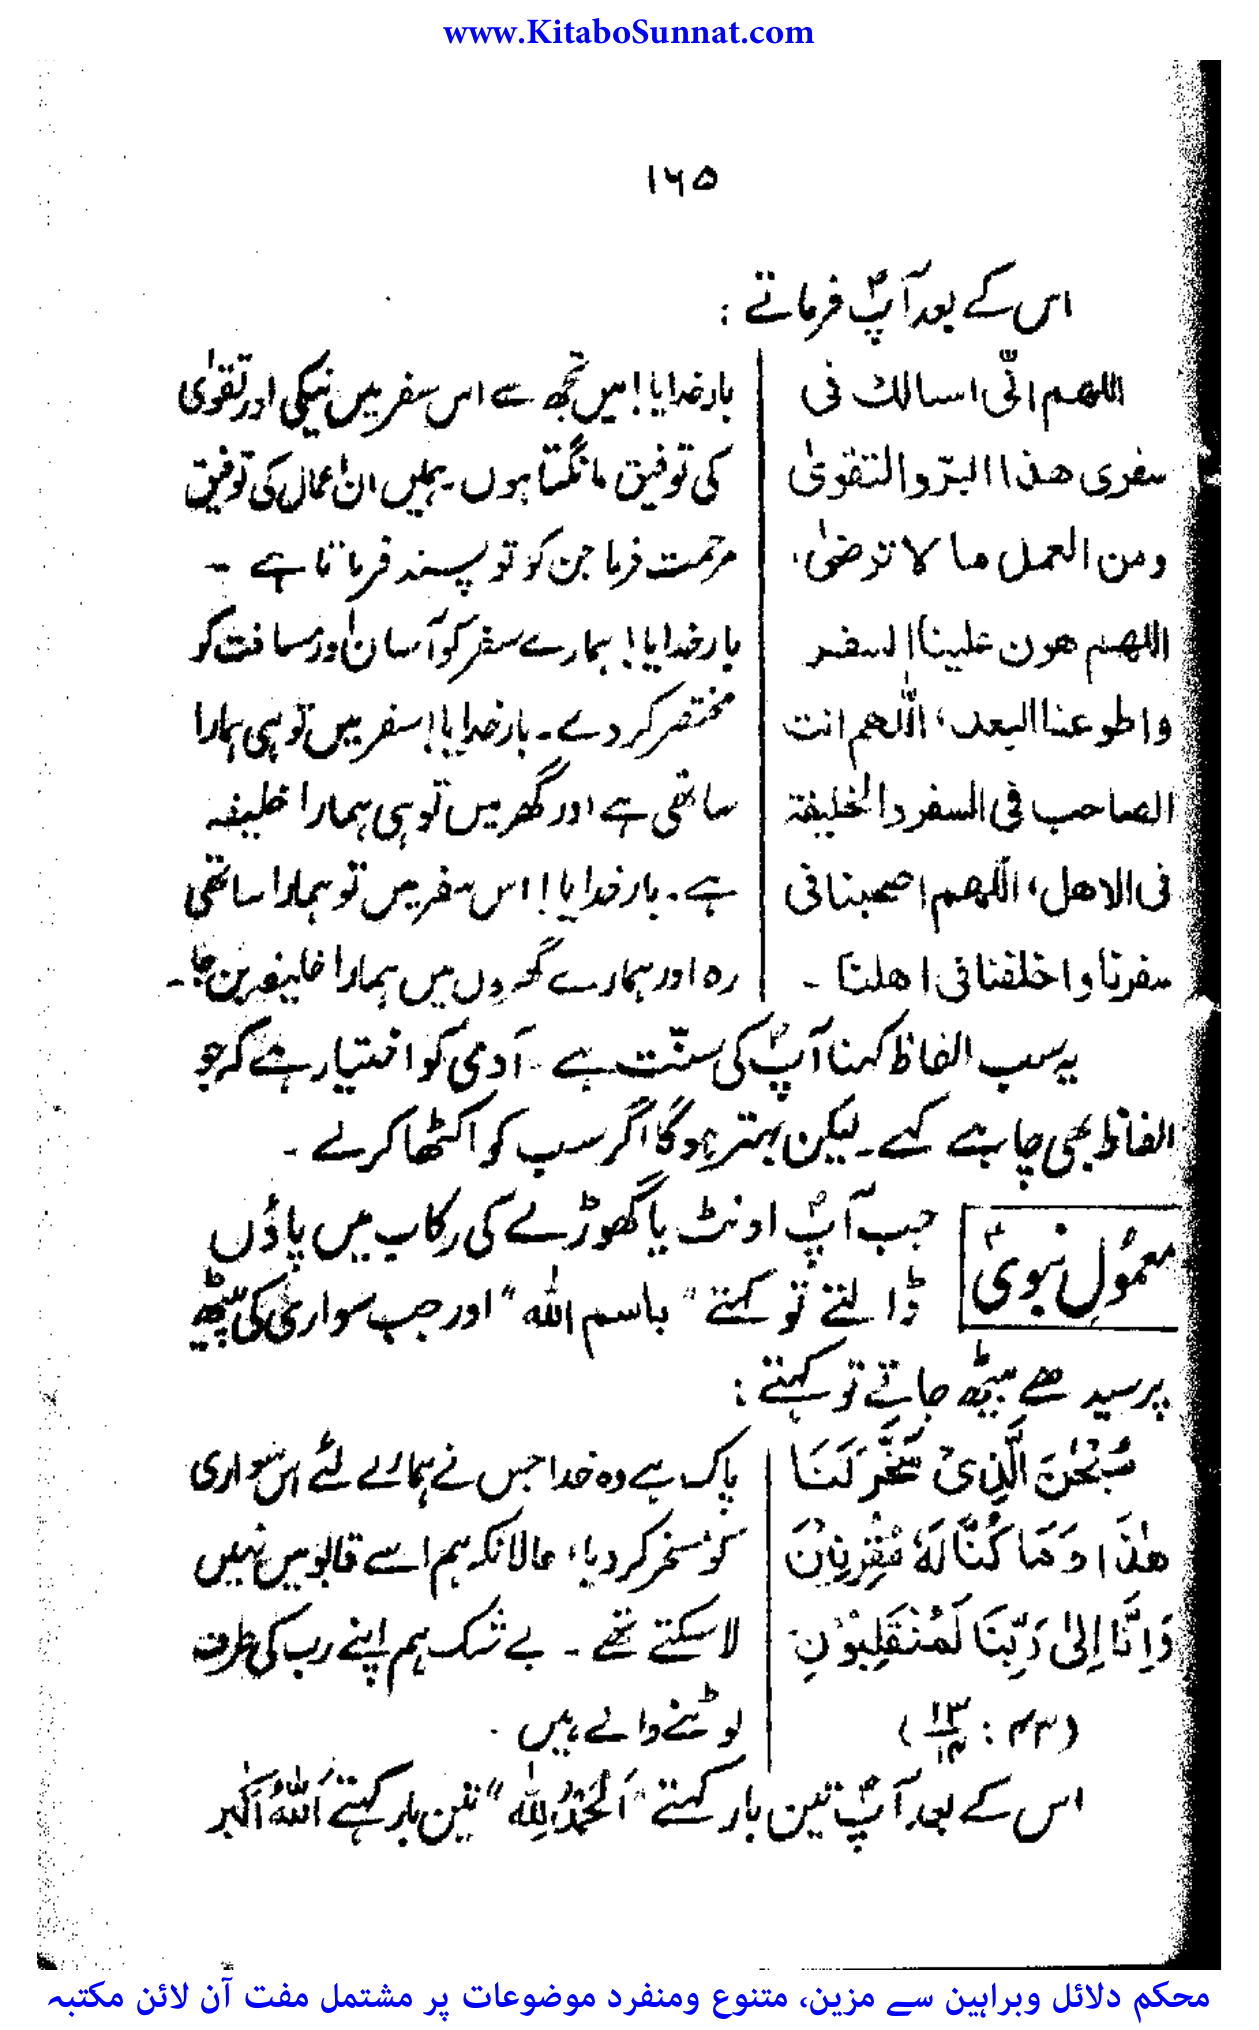 www.KitaboSunnat.com
۱۶۵
اس کے بعد آپؐ فرماتے :
اللھم انّی اسالك فی
سفری ھذا البرّ والتقویٰ
ومن العمل ما لا ترضیٰ،
اللھم ھون علینا السفر
واطو عنا البعد، اللّٰھم انت
الصاحب فی السفر والخلیفة
فی الاھل، اللّھم اصحبنا فی
سفرنا واخلفنا فی اھلنا ۔
بارخدایا! میں تجھ سے اس سفر میں نیکی اور تقوٰی
کی توفیق مانگتا ہوں۔ ہمیں ان اعمال کی توفیق
مرحمت فرما جن کو تو پسند فرماتا ہے ۔
بارخدایا! ہمارے سفر کو آسان اور مسافت کو
مختصر کر دے ۔ بارخدایا! سفر میں تو ہی ہمارا
ساتھی ہے اور گھر میں تو ہی ہمارا خلیفہ
ہے ۔ بارخدایا! اس سفر میں تو ہمارا ساتھی
رہ اور ہمارے گھروں میں ہمارا خلیفہ بن جا ۔
یہ سب الفاظ کہنا آپؐ کی سنّت ہے ۔ آدمی کو اختیار ہے کہ جو
الفاظ بھی چاہے کہے ۔ لیکن بہتر ہوگا اگر سب کو اکٹھا کرلے ۔
معمولِ نبویؐ
جب آپؐ اونٹ یا گھوڑے کی رکاب میں پاؤں
ڈالتے تو کہتے "باسم اللہ" اور جب سواری کی پیٹھ
پر سیدھے بیٹھ جاتے تو کہتے :
سُبْحٰنَ الَّذِیْ سَخَّرَ لَنَا
ھٰذَا وَمَا كُنَّا لَهٗ مُقْرِنِیْنَ
وَاِنَّا اِلیٰ رَبِّنَا لَمُنْقَلِبُوْنَ
(۴۳ : ۱۳/۱۴)
پاک ہے وہ خدا جس نے ہمارے لئے اس سواری
کو مسخر کر دیا، حالانکہ ہم اسے قابو میں نہیں
لا سکتے تھے ۔ بے شک ہم اپنے رب کی طرف
لوٹنے والے ہیں ۔
اس کے بعد آپؐ تین بار کہتے "اَلْحَمْدُ لِلّٰہ" تین بار کہتے اَللّٰہُ اَکْبَر
محکم دلائل وبراہین سے مزین، متنوع ومنفرد موضوعات پر مشتمل مفت آن لائن مکتبہ